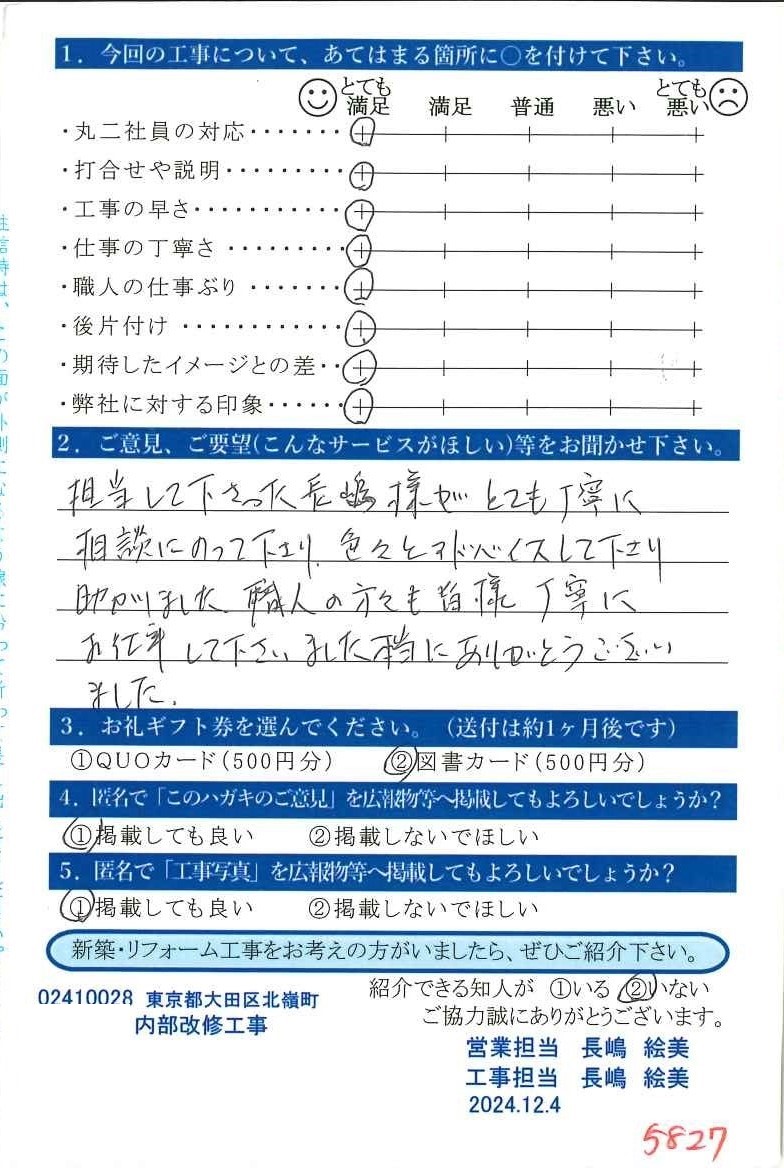 1. 今回の工事について、あてはまる箇所に○を付けて下さい。
とても満足 満足 普通 悪い とても悪い
・丸二社員の対応・・・・・・・
・打合せや説明・・・・・・・・・
・工事の早さ・・・・・・・・・・・
・仕事の丁寧さ ・・・・・・・・・
・職人の仕事ぶり ・・・・・・・
・後片付け ・・・・・・・・・・・・
・期待したイメージとの差・・
・弊社に対する印象・・・・・・
2. ご意見、ご要望(こんなサービスがほしい)等をお聞かせ下さい。
担当して下さった長嶋様がとても丁寧に
相談にのって下さり、色々とアドバイスして下さり
助かりました。職人の方々も皆様 丁寧に
お仕事して下さいました。本当にありがとうござい
ました。
3. お礼ギフト券を選んでください。(送付は約1ヶ月後です)
①QUOカード(500円分) ②図書カード(500円分)
4. 匿名で「このハガキのご意見」を広報物等へ掲載してもよろしいでしょうか?
①掲載しても良い ②掲載しないでほしい
5. 匿名で「工事写真」を広報物等へ掲載してもよろしいでしょうか?
①掲載しても良い ②掲載しないでほしい
新築・リフォーム工事をお考えの方がいましたら、ぜひご紹介下さい。
紹介できる知人が ①いる ②いない
ご協力誠にありがとうございます。
02410028 東京都大田区北嶺町
内部改修工事
営業担当 長嶋 絵美
工事担当 長嶋 絵美
2024.12.4
5827